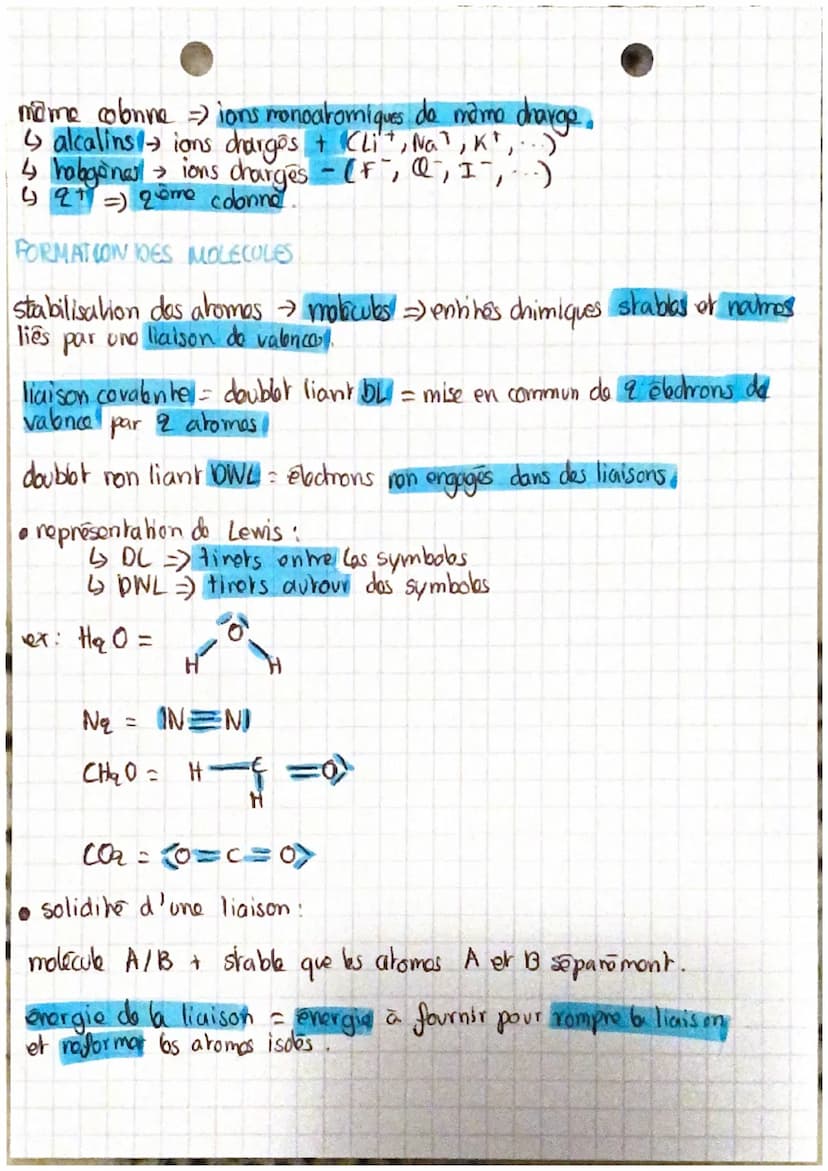 même colonne => ions monoatomiques de même charge.
↳ alcalins → ions chargés + (Li⁺, Na⁺, K⁺, ...)
↳ halogènes → ions chargés - (F⁻, Cl⁻, I⁻, ...)
↳ 2+ => 2ème colonne.
FORMATION DES MOLECULES
stabilisation des atomes → molécules => entités chimiques stables et neutres
liés par une liaison de valence.
liaison covalente = doublet liant DL = mise en commun de 2 électrons de
valence par 2 atomes
doublet non liant DNL = électrons non engagés dans des liaisons.
• représentation de Lewis :
↳ DL => tirets entre les symboles
↳ DNL => tirets autour des symboles
ex: H₂O = H O H
N₂ = |N≡N|
CH₂O = H — C = O
H
CO₂ = ⟨O=C=O⟩
• solidité d'une liaison :
molécule A/B + stable que les atomes A et B séparément.
énergie de la liaison = énergie à fournir pour rompre la liaison
et reformer les atomes isolés.